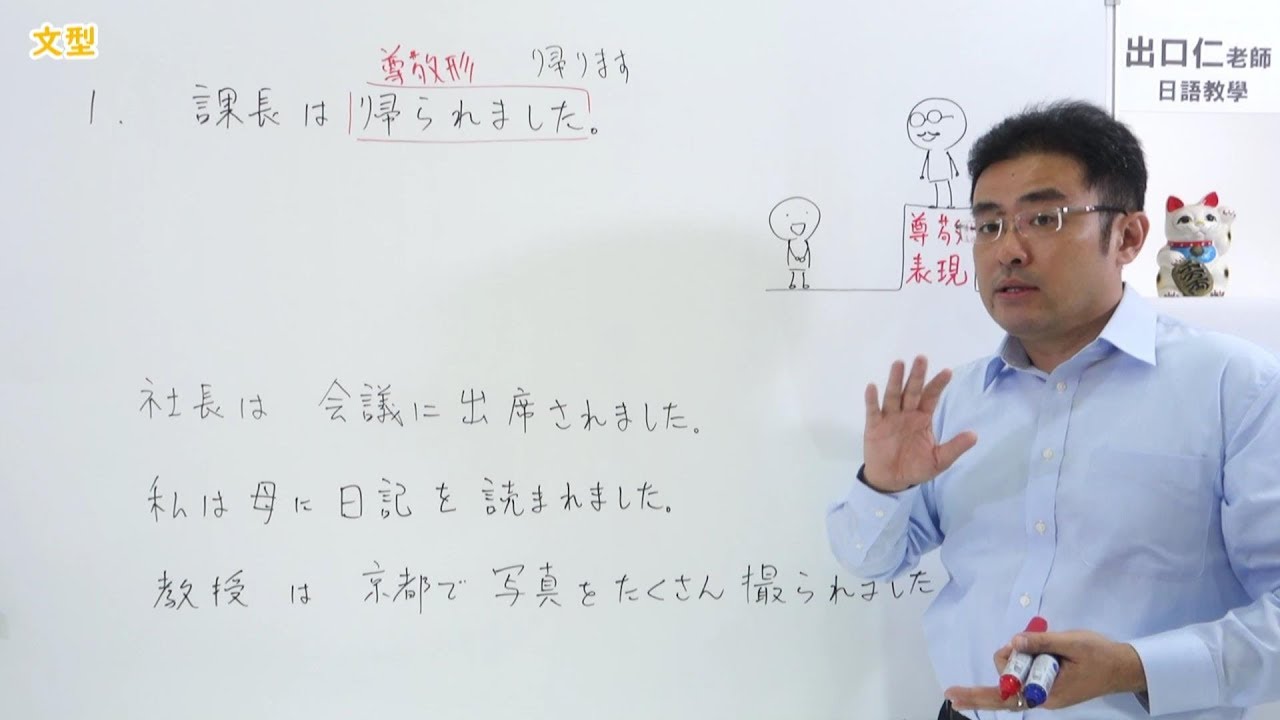 文型
出口仁老師
日語教學
尊敬形 帰ります
1. 課長は帰られました。
尊敬
表現
社長は 会議に出席されました。
私は母に日記を読まれました。
教授は 京都で写真をたくさん撮られました